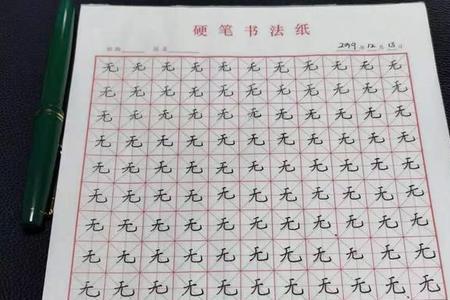 硬笔书法纸
2019年12月13日
无无无无无无无无无无无
无无无无无无无无无无无
无无无无无无无无无无无
无无无无无无无无无无无
无无无无无无无无无无无
无无无无无无无无无无无
无无无无无无无无无无无
无无无无无无无无无无无
无无无无无无无无无无无